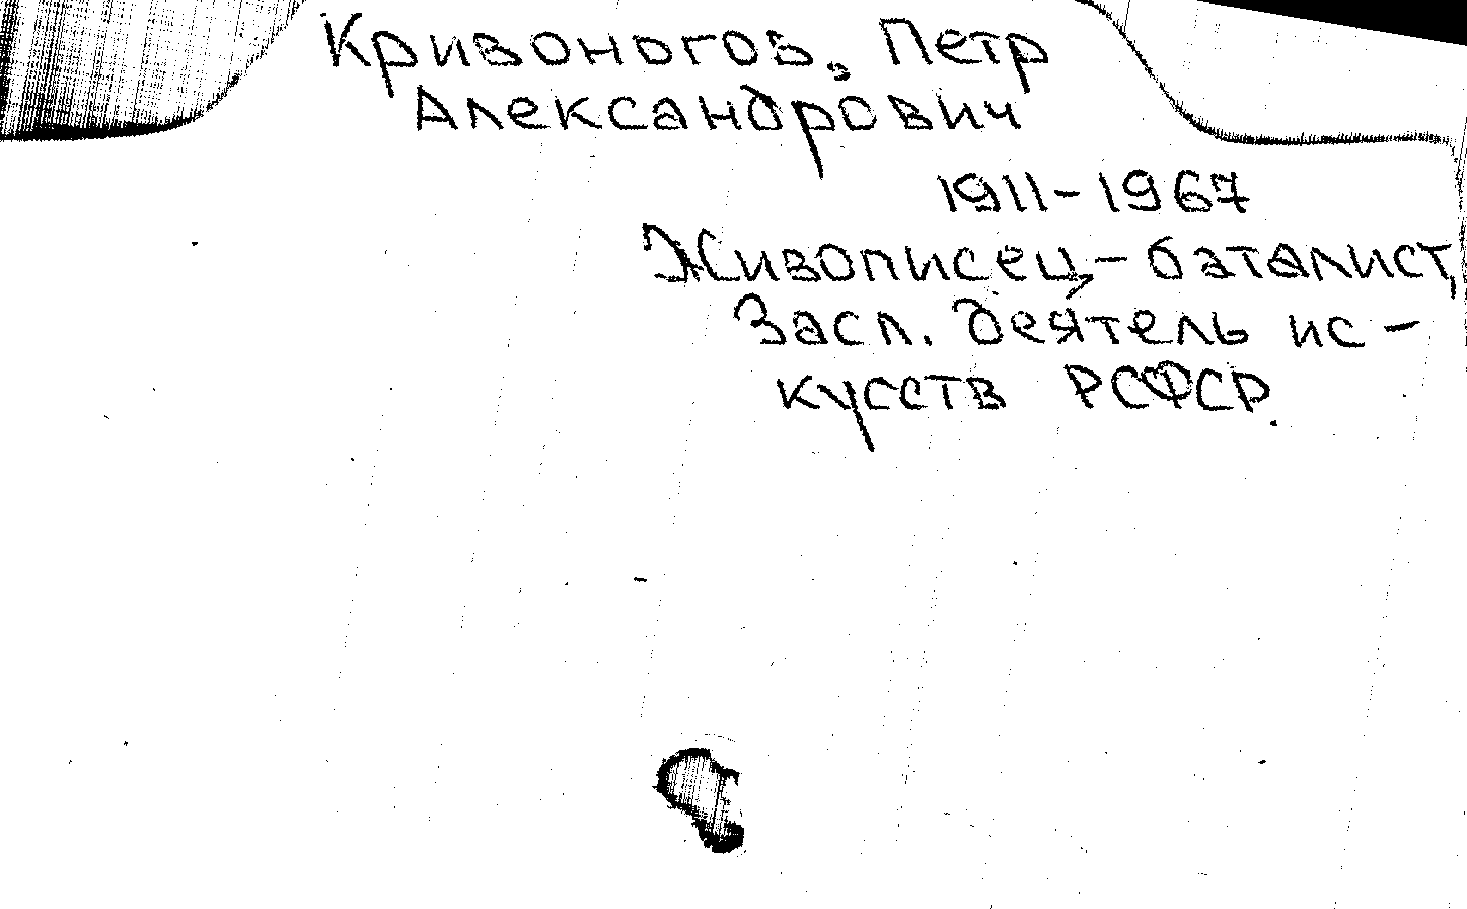 Кривоногов, Петр
Александрович
1911-1967
Живописец-баталист,
Засл. деятель ис-
кусств РСФСР.